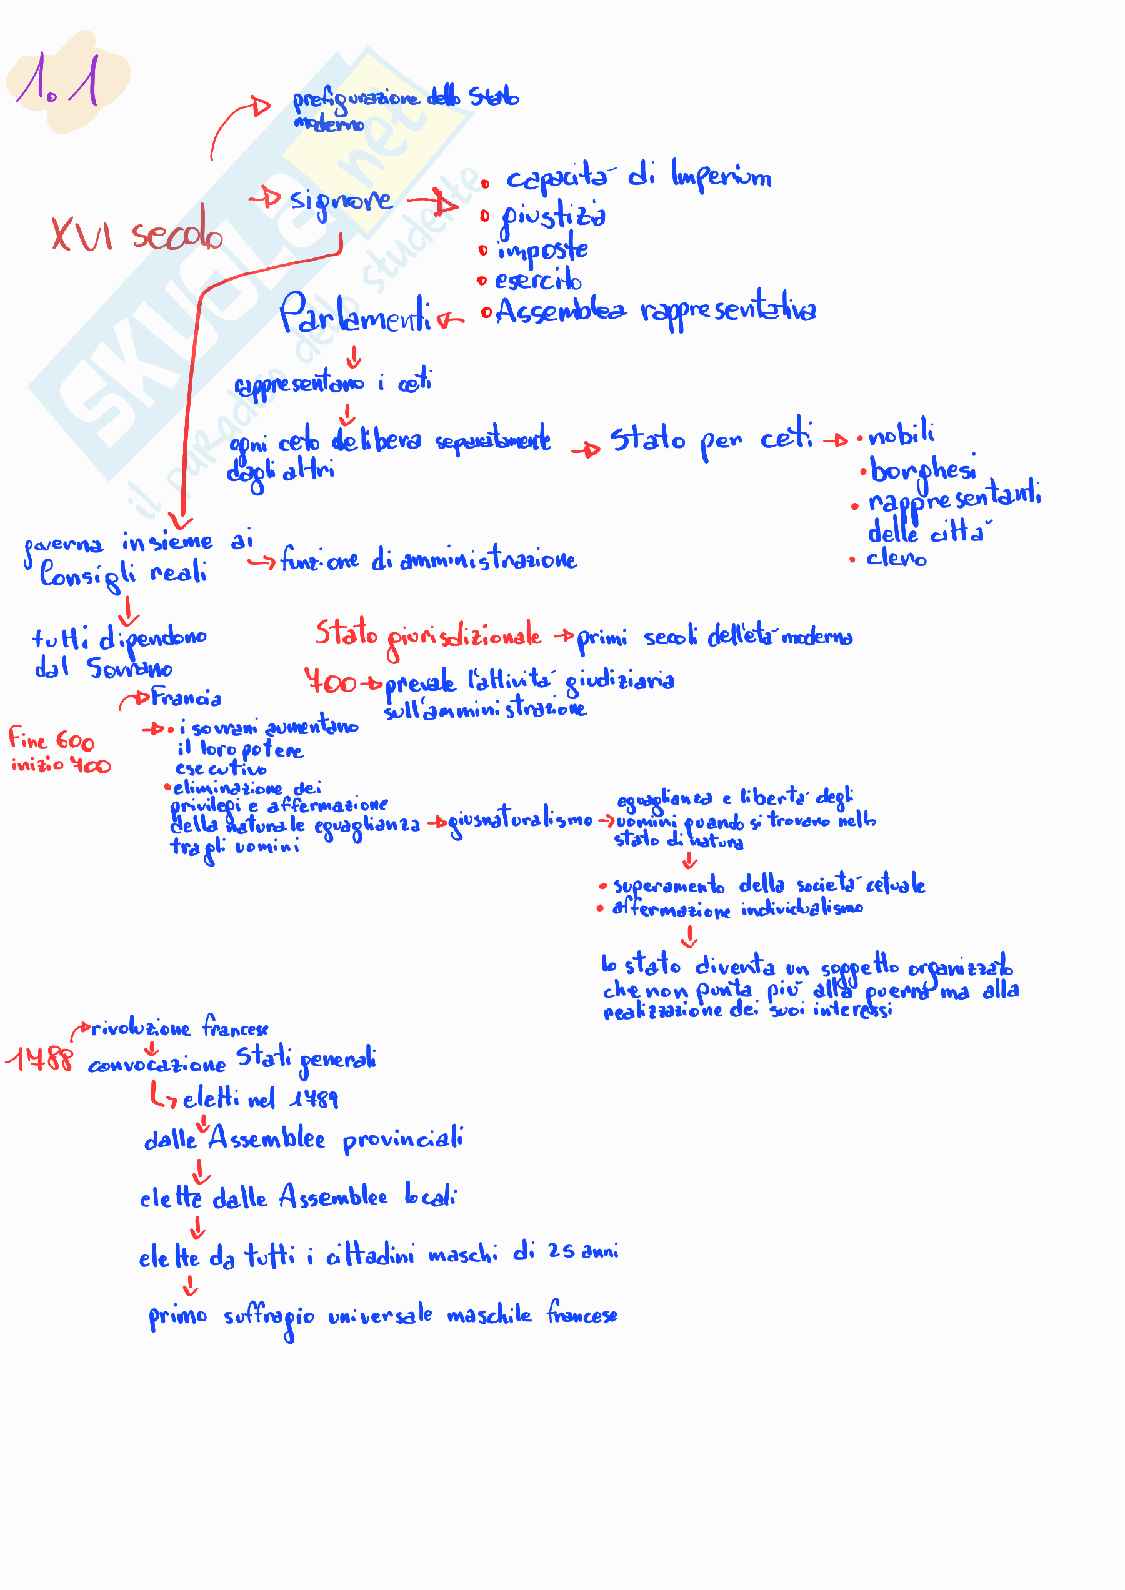 1.1
prefigurazione dello Stato
moderno
XVI secolo
signore
• capacità di Imperium
• giustizia
• imposte
• esercito
• Assemblea rappresentativa
Parlamenti
rappresentano i ceti
ogni ceto delibera separatamente
dagli altri
Stato per ceti
• nobili
• borghesi
• rappresentanti
delle città
• clero
governa insieme ai
Consigli reali
funzione di amministrazione
tutti dipendono
dal Sovrano
Stato giurisdizionale
primi secoli dell'età moderna
700
prevale l'attività giudiziaria
sull'amministrazione
Fine 600
inizio 700
Francia
• i sovrani aumentano
il loro potere
esecutivo
• eliminazione dei
privilegi e affermazione
della naturale eguaglianza
tra gli uomini
giusnaturalismo
eguaglianza e libertà degli
uomini quando si trovano nello
stato di natura
• superamento della società cetuale
• affermazione individualismo
lo stato diventa un soggetto organizzato
che non punta più alla guerra ma alla
realizzazione dei suoi interessi
1788
rivoluzione francese
convocazione Stati generali
eletti nel 1789
dalle Assemblee provinciali
elette dalle Assemblee locali
elette da tutti i cittadini maschi di 25 anni
primo suffragio universale maschile francese
SKUOLA.net
il paradiso dello studente